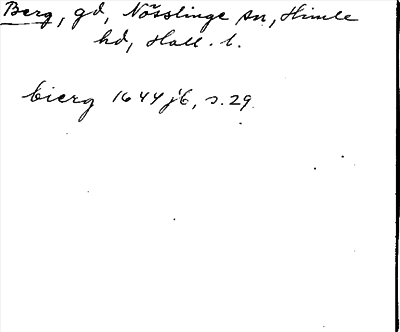 Berg, gd, Nösslinge sn, Himle
hd, Hall. l.
bierg 1644 jb, s. 29.